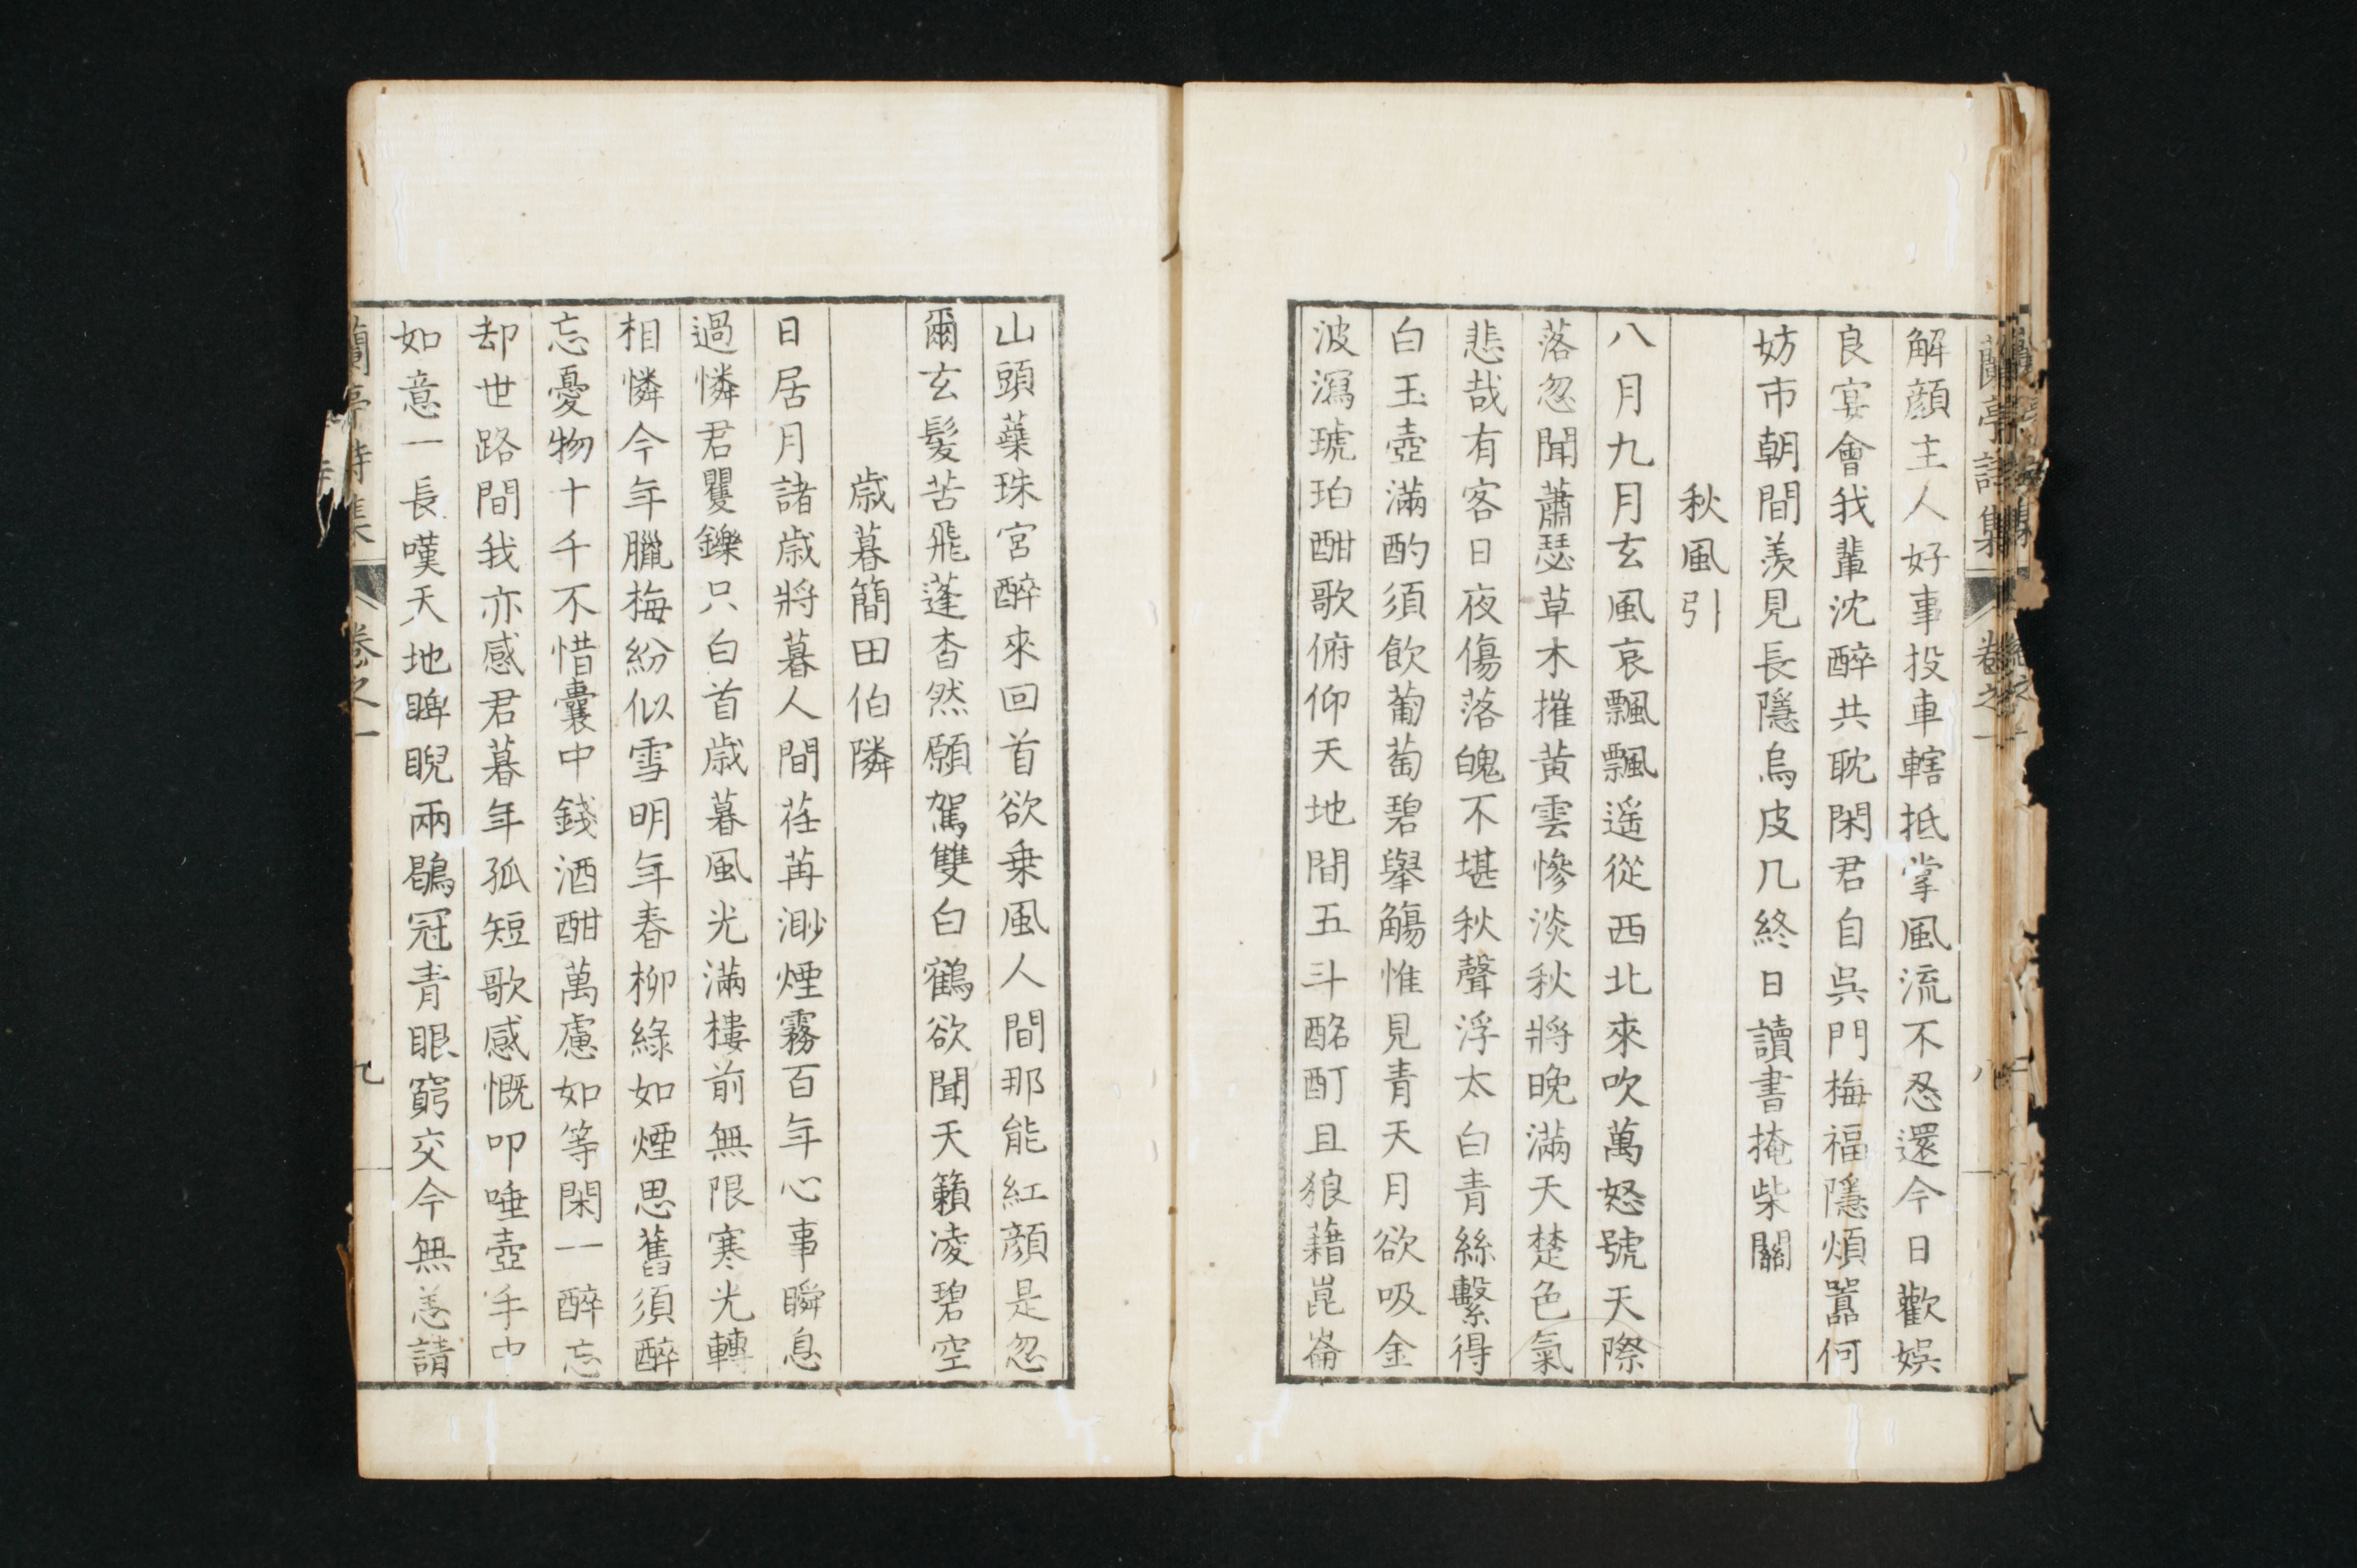 蘭亭詩集 卷之一 八
解顏主人好事投車轄抵掌風流不忍還今日歡娯
良宴會我輩沈醉共耽閑君自吳門梅福隱煩囂何
妨市朝間羨見長隱烏皮几終日讀書掩柴關
秋風引
八月九月玄風哀飄飄遥從西北來吹萬怒號天際
落忽聞蕭瑟草木摧黃雲慘淡秋將晚滿天楚色氣
悲哉有客日夜傷落魄不堪秋聲浮太白青絲繫得
白玉壺滿酌須飲葡萄碧擧觴惟見青天月欲吸金
波瀉琥珀酣歌俯仰天地間五斗酩酊且狼藉崑崙
山頭蘂珠宮醉來回首欲乗風人間那能紅顏是忽
爾玄髮苦飛蓬杳然願駕雙白鶴欲聞天籟凌碧空
歳暮簡田伯隣
日居月諸歳將暮人間荏苒渺煙霧百年心事瞬息
過憐君矍鑠只白首歳暮風光滿樓前無限寒光轉
相憐今年臘梅紛似雪明年春柳綠如煙思舊須醉
忘憂物十千不惜囊中錢酒酣萬慮如等閑一醉忘
却世路間我亦感君暮年孤短歌感慨叩唾壺手中
如意一長嘆天地睥睨兩鶡冠青眼窮交今無恙請
蘭亭詩集 卷之一 九